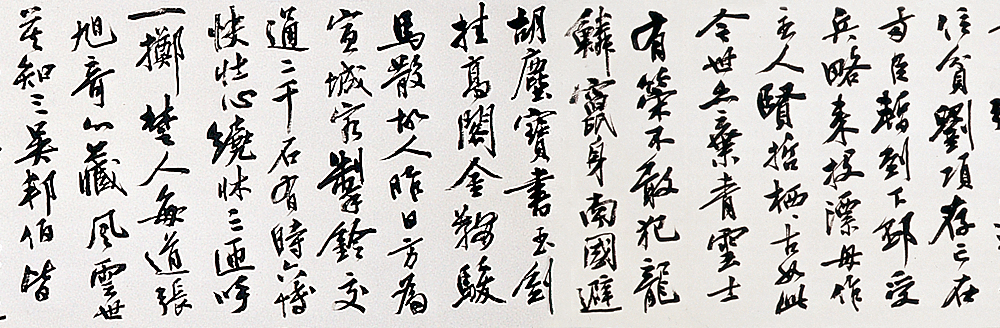 信貧劉項存亡在
兩臣暫到下邳受
兵略來投漂母作
主人賢哲栖〻古如此
今世亦棄青雲士
有策不敢犯龍
鱗竄身南國避
胡塵寶書玉劍
挂高閣金鞍駿
馬散故人昨日方為
宣城客掣鈴交
通二千石有時六博
快壯心繞床三匝呼
一擲楚人每道張
旭奇心藏風雲世
莫知三吳邦伯皆